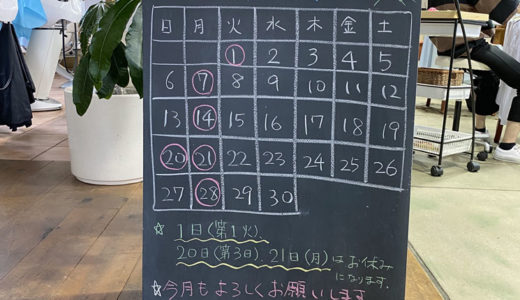 日 月 火 水 木 金 土
1 2 3 4 5
6 7 8 9 10 11 12
13 14 15 16 17 18 19
20 21 22 23 24 25 26
27 28 29 30
☆ 1日(第1火)、
20日(第3日)、21日(月)はお休み
になります。
☆今月もよろしくお願いします